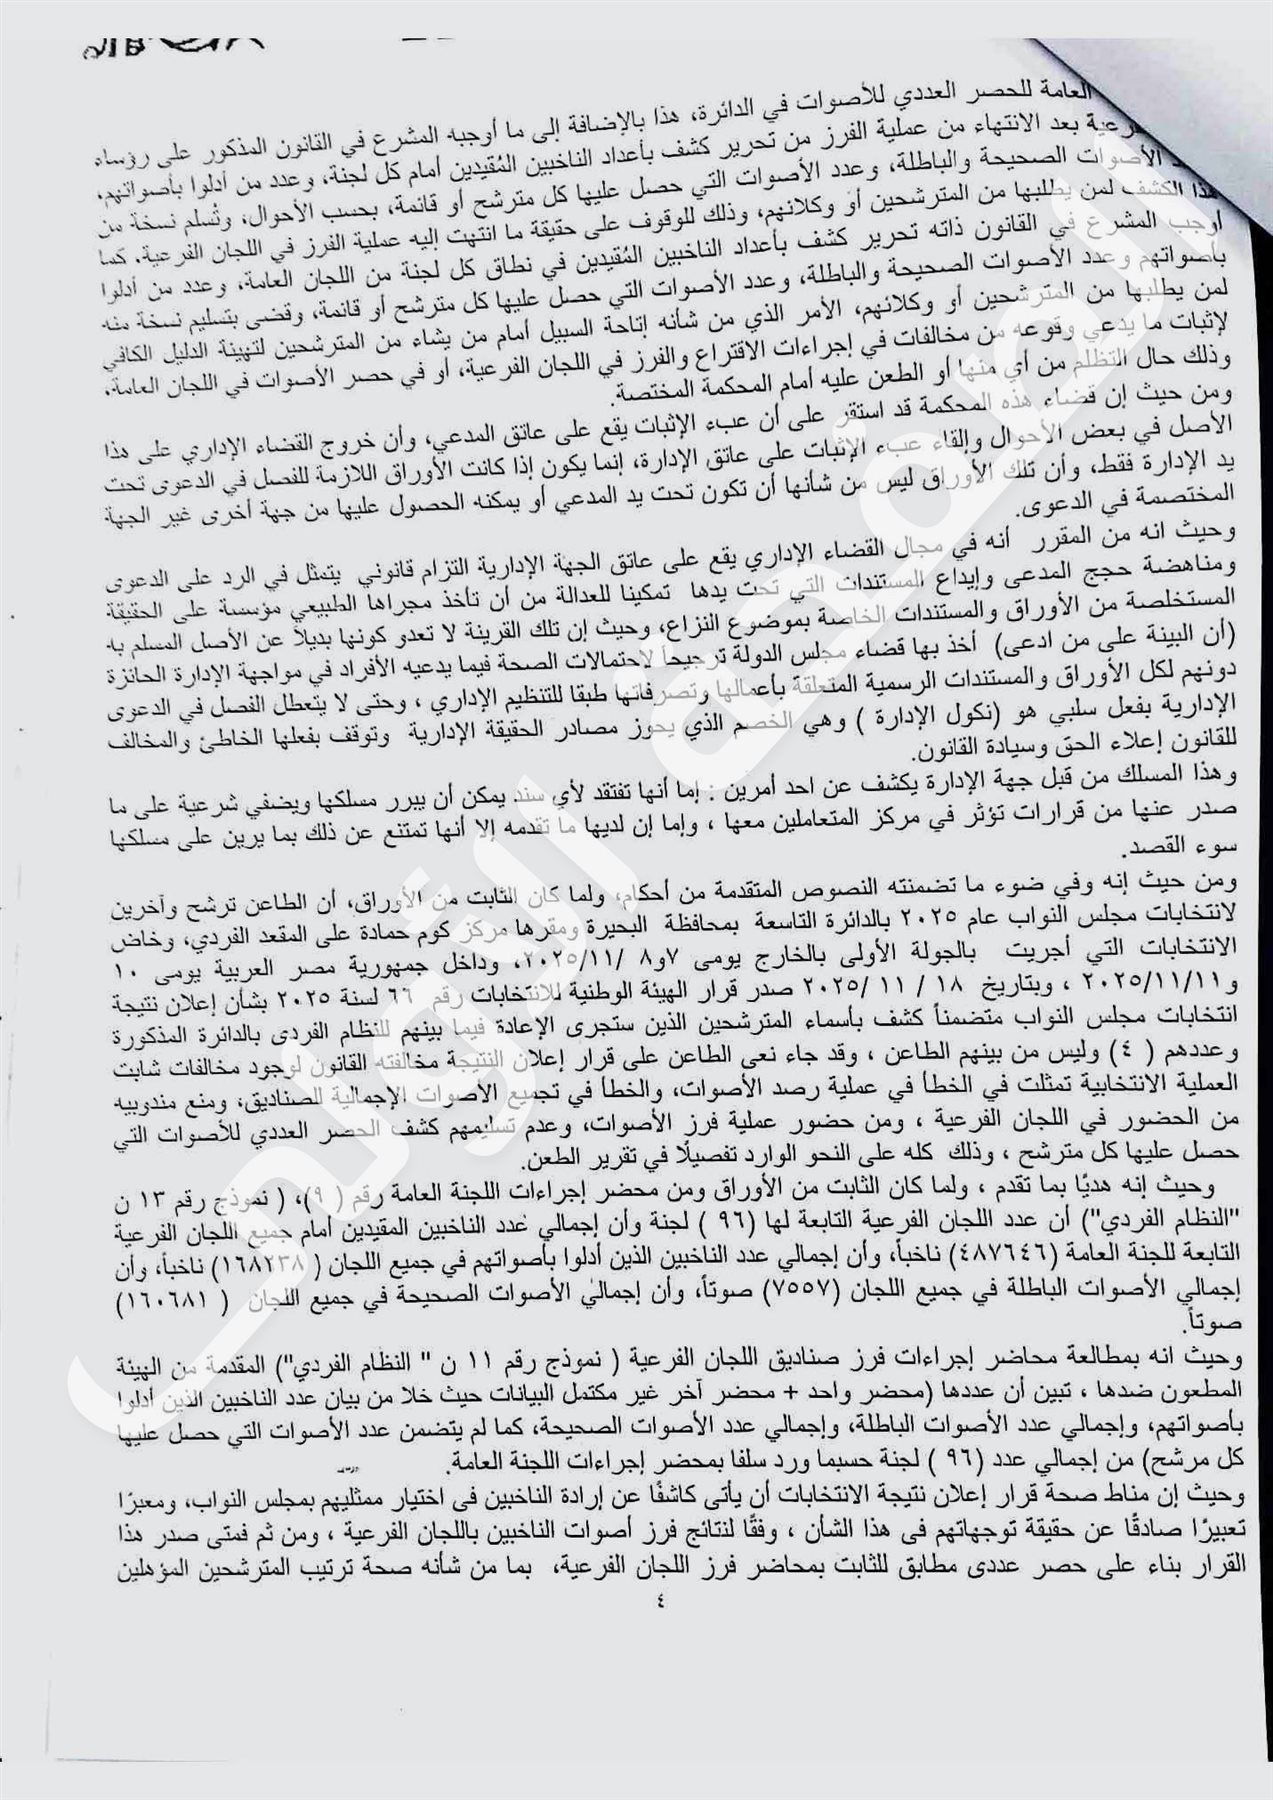 العامة للحصر العددي للأصوات في الدائرة، هذا بالإضافة إلى ما أوجبه المشرع في القانون المذكور على رؤساء
بعد الانتهاء من عملية الفرز من تحرير كشف بأعداد الناخبين المُقيدين أمام كل لجنة، وعدد من أدلوا بأصواتهم،
الأصوات الصحيحة والباطلة، وعدد الأصوات التي حصل عليها كل مترشح أو قائمة، بحسب الأحوال، وتُسلم نسخة من
هذا الكشف لمن يطلبها من المترشحين أو وكلائهم، وذلك للوقوف على حقيقة ما انتهت إليه عملية الفرز في اللجان الفرعية. كما
أوجب المشرع في القانون ذاته تحرير كشف بأعداد الناخبين المُقيدين في نطاق كل لجنة من اللجان العامة، وعدد من أدلوا
بأصواتهم وعدد الأصوات الصحيحة والباطلة، وعدد الأصوات التي حصل عليها كل مترشح أو قائمة، وقضى بتسليم نسخة منه
لمن يطلبها من المترشحين أو وكلائهم، الأمر الذي من شأنه إتاحة السبيل أمام من يشاء من المترشحين لتهيئة الدليل الكافي
لإثبات ما يدعي وقوعه من مخالفات في إجراءات الاقتراع والفرز في اللجان الفرعية، أو في حصر الأصوات في اللجان العامة،
وذلك حال التظلم من أي منها أو الطعن عليه أمام المحكمة المختصة.
ومن حيث إن قضاء هذه المحكمة قد استقر على أن عبء الإثبات يقع على عاتق المدعي، وأن خروج القضاء الإداري على هذا
الأصل في بعض الأحوال وإلقاء عبء الإثبات على عاتق الإدارة، إنما يكون إذا كانت الأوراق اللازمة للفصل في الدعوى تحت
يد الإدارة فقط، وأن تلك الأوراق ليس من شأنها أن تكون تحت يد المدعي أو يمكنه الحصول عليها من جهة أخرى غير الجهة
المختصمة في الدعوى.
وحيث انه من المقرر أنه في مجال القضاء الإداري يقع على عاتق الجهة الإدارية التزام قانوني يتمثل في الرد على الدعوى
ومناهضة حجج المدعى وإيداع المستندات التي تحت يدها تمكينا للعدالة من أن تأخذ مجراها الطبيعي مؤسسة على الحقيقة
المستخلصة من الأوراق والمستندات الخاصة بموضوع النزاع، وحيث إن تلك القرينة لا تعدو كونها بديلاً عن الأصل المسلم به
(أن البينة على من ادعى) أخذ بها قضاء مجلس الدولة ترجيحاً لاحتمالات الصحة فيما يدعيه الأفراد في مواجهة الإدارة الحائزة
دونهم لكل الأوراق والمستندات الرسمية المتعلقة بأعمالها وتصرفاتها طبقا للتنظيم الإداري ، وحتى لا يتعطل الفصل في الدعوى
الإدارية بفعل سلبي هو (نكول الإدارة ) وهي الخصم الذي يحوز مصادر الحقيقة الإدارية وتوقف بفعلها الخاطئ والمخالف
للقانون إعلاء الحق وسيادة القانون.
وهذا المسلك من قبل جهة الإدارة يكشف عن احد أمرين : إما أنها تفتقد لأي سند يمكن أن يبرر مسلكها ويضفي شرعية على ما
صدر عنها من قرارات تؤثر في مركز المتعاملين معها ، وإما إن لديها ما تقدمه إلا أنها تمتنع عن ذلك بما يرين على مسلكها
سوء القصد.
ومن حيث إنه وفي ضوء ما تضمنته النصوص المتقدمة من أحكام، ولما كان الثابت من الأوراق، أن الطاعن ترشح وآخرين
لانتخابات مجلس النواب عام ٢٠٢٥ بالدائرة التاسعة بمحافظة البحيرة ومقرها مركز كوم حمادة على المقعد الفردي، وخاض
الانتخابات التي أجريت بالجولة الأولى بالخارج يومى ٧و٨ /٢٠٢٥/١١، وداخل جمهورية مصر العربية يومى ١٠
و٢٠٢٥/١١/١١ ، وبتاريخ ١٨ / ١١ /٢٠٢٥ صدر قرار الهيئة الوطنية للانتخابات رقم ٦٦ لسنة ٢٠٢٥ بشأن إعلان نتيجة
انتخابات مجلس النواب متضمناً كشف بأسماء المترشحين الذين ستجرى الإعادة فيما بينهم للنظام الفردى بالدائرة المذكورة
وعددهم ( ٤) وليس من بينهم الطاعن ، وقد جاء نعى الطاعن على قرار إعلان النتيجة مخالفته القانون لوجود مخالفات شابت
العملية الانتخابية تمثلت في الخطأ في عملية رصد الأصوات، والخطأ في تجميع الأصوات الإجمالية للصناديق، ومنع مندوبيه
من الحضور في اللجان الفرعية ، ومن حضور عملية فرز الأصوات، وعدم تسليمهم كشف الحصر العددي للأصوات التي
حصل عليها كل مترشح ، وذلك كله على النحو الوارد تفصيلًا في تقرير الطعن.
وحيث إنه هديًا بما تقدم ، ولما كان الثابت من الأوراق ومن محضر إجراءات اللجنة العامة رقم ( ٩)، ( نموذج رقم ١٣ ن
"النظام الفردي") أن عدد اللجان الفرعية التابعة لها (٩٦ ) لجنة وأن إجمالي عدد الناخبين المقيدين أمام جميع اللجان الفرعية
التابعة للجنة العامة (٤٨٧٦٤٦) ناخباً، وأن إجمالي عدد الناخبين الذين أدلوا بأصواتهم في جميع اللجان ( ١٦٨٢٣٨) ناخباً، وأن
إجمالي الأصوات الباطلة في جميع اللجان (٧٥٥٧) صوتاً، وأن إجمالي الأصوات الصحيحة في جميع اللجان ( ١٦٠٦٨١)
صوتاً.
وحيث انه بمطالعة محاضر إجراءات فرز صناديق اللجان الفرعية ( نموذج رقم ١١ ن " النظام الفردي") المقدمة من الهيئة
المطعون ضدها ، تبين أن عددها (محضر واحد + محضر آخر غير مكتمل البيانات حيث خلا من بيان عدد الناخبين الذين أدلوا
بأصواتهم، وإجمالي عدد الأصوات الباطلة، وإجمالي عدد الأصوات الصحيحة، كما لم يتضمن عدد الأصوات التي حصل عليها
كل مرشح) من إجمالي عدد (٩٦ ) لجنة حسبما ورد سلفا بمحضر إجراءات اللجنة العامة.
وحيث إن مناط صحة قرار إعلان نتيجة الانتخابات أن يأتى كاشفًا عن إرادة الناخبين فى اختيار ممثليهم بمجلس النواب، ومعبرًا
تعبيرًا صادقًا عن حقيقة توجهاتهم فى هذا الشأن ، وفقًا لنتائج فرز أصوات الناخبين باللجان الفرعية ، ومن ثم فمتى صدر هذا
القرار بناء على حصر عددى مطابق للثابت بمحاضر فرز اللجان الفرعية، بما من شأنه صحة ترتيب المترشحين المؤهلين
٤
الصفحة الأولى